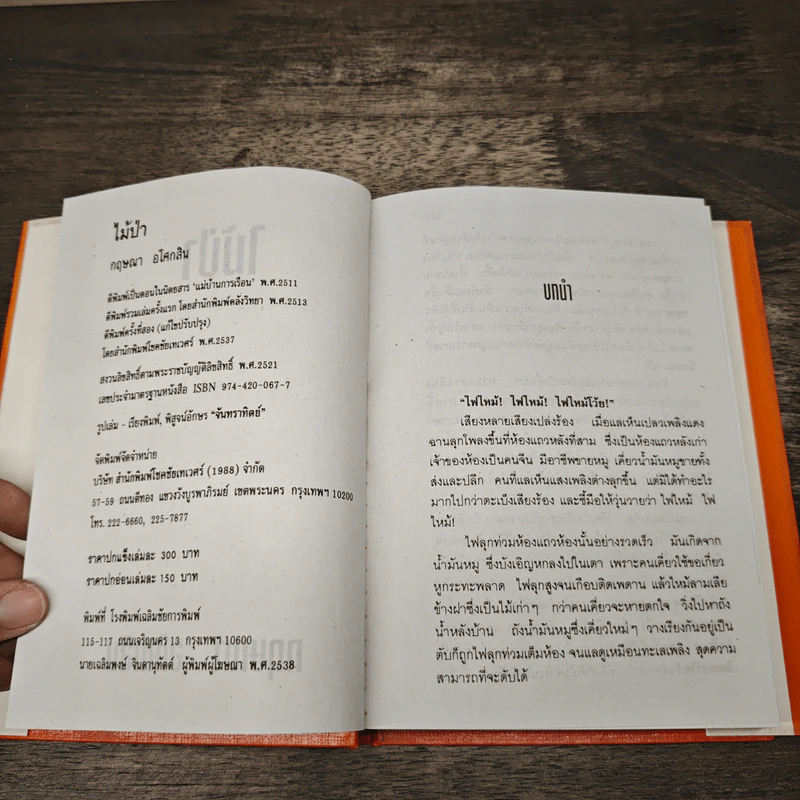 ไม้ป่า
กฤษณา อโศกสิน
ตีพิมพ์เป็นตอนในนิตยสาร ‘แม่บ้านการเรือน’ พ.ศ.2511
ตีพิมพ์รวมเล่มครั้งแรก โดยสำนักพิมพ์คลังวิทยา พ.ศ.2513
ตีพิมพ์ครั้งที่สอง (แก้ไขปรับปรุง)
โดยสำนักพิมพ์โชคชัยเทเวศร์ พ.ศ.2537
สงวนลิขสิทธิ์ตามพระราชบัญญัติลิขสิทธิ์ พ.ศ.2521
เลขประจำมาตรฐานหนังสือ ISBN 974-420-067-7
รูปเล่ม - เรียงพิมพ์, พิสูจน์อักษร “จันทราทิตย์”
จัดพิมพ์จัดจำหน่าย
บริษัท สำนักพิมพ์โชคชัยเทเวศร์ (1988) จำกัด
57-59 ถนนตีทอง แขวงวังบูรพาภิรมย์ เขตพระนคร กรุงเทพฯ 10200
โทร. 222-6660, 225-7877
ราคาปกแข็งเล่มละ 300 บาท
ราคาปกอ่อนเล่มละ 150 บาท
พิมพ์ที่ โรงพิมพ์เฉลิมชัยการพิมพ์
115-117 ถนนเจริญนคร 13 กรุงเทพฯ 10600
นายเฉลิมพงษ์ จินดานุทัตต์ ผู้พิมพ์ผู้โฆษณา พ.ศ.2538
บทนำ
“ไฟไหม้! ไฟไหม้! ไฟไหม้โว้ย!”
เสียงหลายเสียงเปล่งร้อง เมื่อแลเห็นเปลวเพลิงแดง
ฉานลุกโพลงขึ้นที่ห้องแถวหลังที่สาม ซึ่งเป็นห้องแถวหลังเก่า
เจ้าของห้องเป็นคนจีน มีอาชีพขายหมู เคี่ยวน้ำมันหมูขายทั้ง
ส่งและปลีก คนที่แลเห็นแสงเพลิงต่างลุกขึ้น แต่มิได้ทำอะไร
มากไปกว่าตะเบ็งเสียงร้อง และชี้มือให้วุ่นวายว่า ไฟไหม้ ไฟ
ไหม้!
ไฟลุกท่วมห้องแถวห้องนั้นอย่างรวดเร็ว มันเกิดจาก
น้ำมันหมู ซึ่งบังเอิญหกลงไปในเตา เพราะคนเคี่ยวใช้ขอเกี่ยว
หูกระทะพลาด ไฟลุกสูงจนเกือบติดเพดาน แล้วไหม้ลามเลีย
ข้างฝาซึ่งเป็นไม้เก่าๆ กว่าคนเคี่ยวจะหายตกใจ วิ่งไปหาถัง
น้ำหลังบ้าน ถังน้ำมันหมูซึ่งเคี่ยวใหม่ๆ วางเรียงกันอยู่เป็น
ตับก็ถูกไฟลุกท่วมเต็มห้อง จนแลดูเหมือนทะเลเพลิง สุดความ
สามารถที่จะดับได้